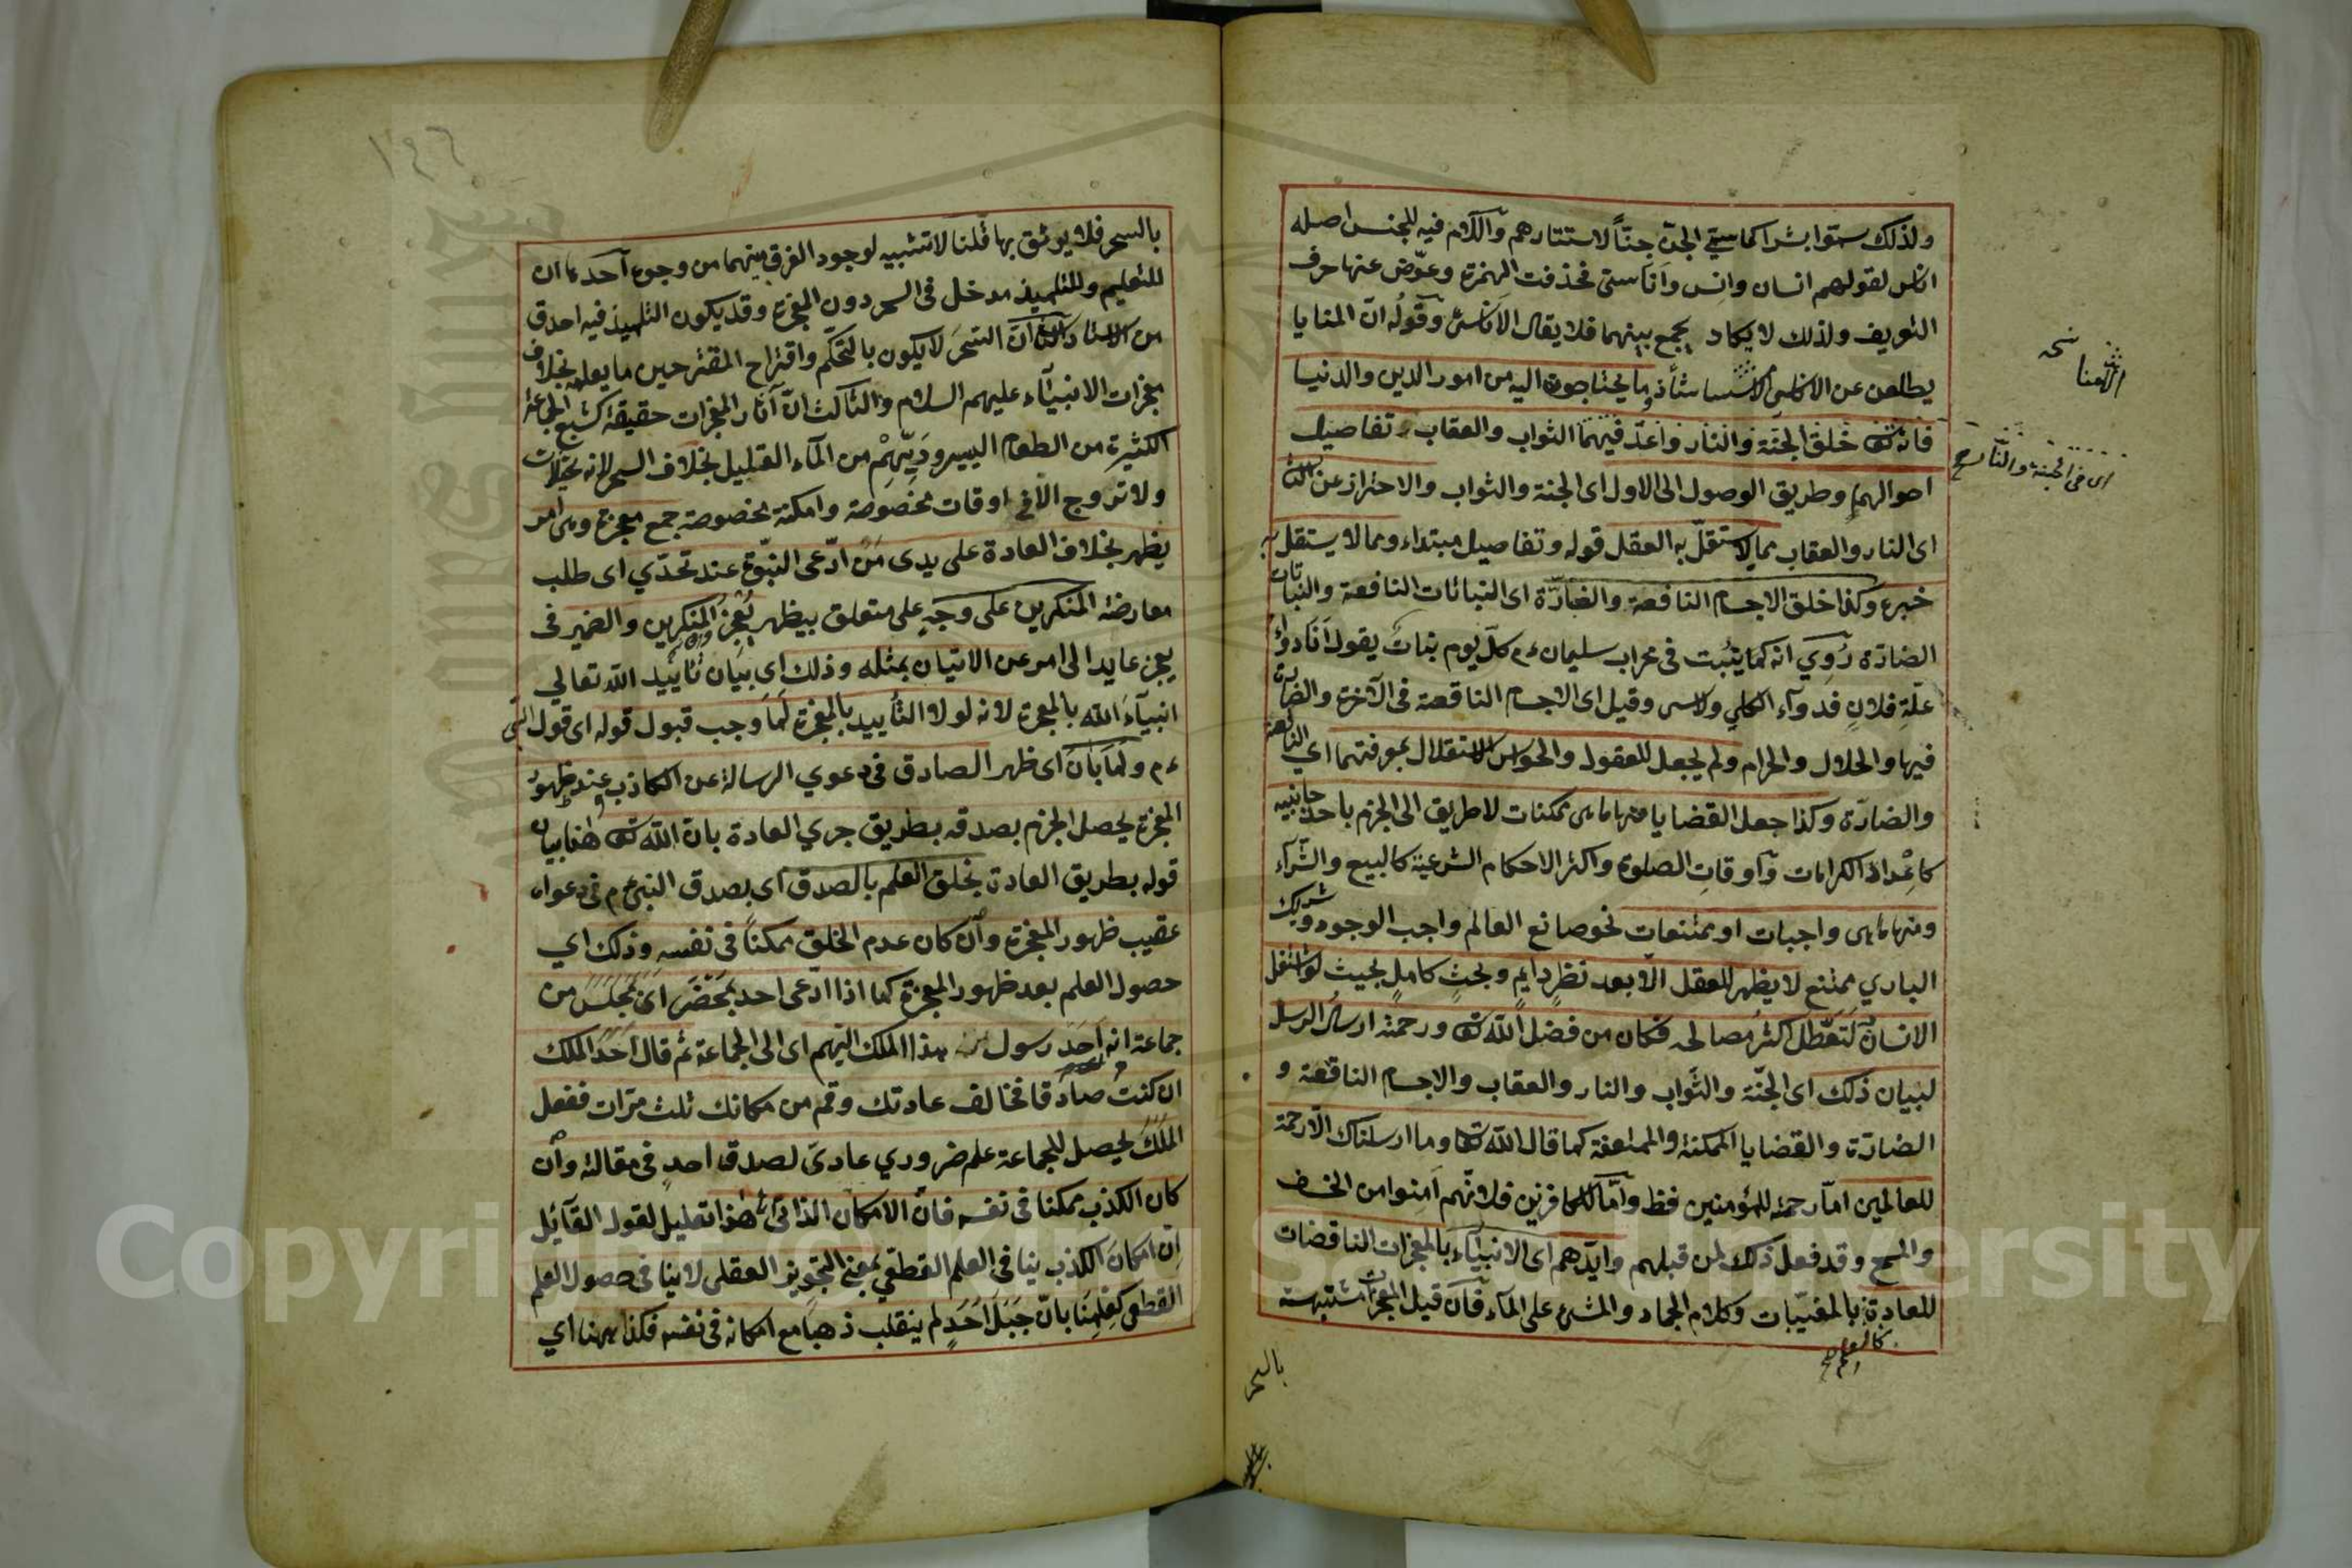 ولذلك سمّوا بشرا كما سمّي الجنّ جنّاً لاستتارهم واللّام فيه للجنس اصله
اناس لقولهم انسان وانس واناسىّ فحذفت الهمزة وعوّض عنها حرف
التعريف ولذلك لا يكاد يجمع بينهما فلا يقال الاناس وقوله انّ المنايا
يطلعن عن الاناس شاذ ما يحتاجون اليه من امور الدين والدنيا
فانه تعالى خلق الجنّة والنار واعدّ فيهما الثواب والعقاب وتفاصيل
احوالهما وطريق الوصول الى الاول اى الجنة والثواب والاحتراز عن الثانى
اى النار والعقاب مما لا يستقلّ به العقل قوله وتفاصيل مبتداء ومما لا يستقل به
خبره وكذا خلق الاجسام النافعة والضارّة اى النباتات النافعة والنباتات
الضارّة رُوي انه كما ينبت فى محراب سليمان ءم كلّ يوم بنات يقول انا دواء
علّة فلان فدوآء الكلي وقيل اى الاجسام النافعة فى الآخرة والضارة
فيها والحلال والحرام ولم يجعل للعقول والحواس الاستقلال بمعرفتهما اي النافعة
والضارّة وكذا جعل القضايا منها ما هى ممكنات لا طريق الى الجزم باحد جانبيه
كاعداد الكرامات واوقات الصلوة واكثر الاحكام الشرعية كالبيع والشرآء
ومنها ما هى واجبات او ممتنعات نحو صانع العالم واجب الوجود وشريك
الباري ممتنع لا يظهر للعقل الّا بعد نظرٍ دايمٍ وبحثٍ كاملٍ بحيث لو اشتغل
الانسان به لتعطّل اكثر مصالحه فكان من فضل الله تعالى ورحمته ارسال الرسل
لبيان ذلك اى الجنّة والثواب والنار والعقاب والاجسام النافعة و
الضارّة والقضايا الممكنة والممتنعة كما قال الله تعالى وما ارسلناك الّا رحمة
للعالمين امّا رحمة للمؤمنين فظ وامّا للكافرين فلانّهم آمنوا من الخسف
والمسخ وقد فعل ذلك لمن قبلهم وايّدهم اى الانبيآء بالمعجزات الناقضات
للعادة بالمغيّبات وكلام الجماد والمشى على المآء فان قيل المعجزات مشتبهة
كالعلم
بالسحر
اى فى الجنة والنار صح
نسخه
بالسحر فلا يوثق بها قلنا لا تشبيه لوجود الفرق بينهما من وجوه احدها ان
للتعليم والتلميذ مدخل فى السحر دون المعجزة وقد يكون التلميذ فيه احدق
من الاستاد والثانى انّ السحر لا يكون بالتحكّم واقتراح المقترحين ما يعلمه بخلاف
معجزات الانبيآء عليهم السلام والثالث انّ آثار المعجزات حقيقة كشبع الجماعة
الكثيرة من الطعام اليسير ورَيّهم من المآء القليل بخلاف السحر لانه تخيّلات
ولا تروج الّا فى اوقات مخصوصة وامكنة مخصوصة جمع معجزة وهى امر
يظهر بخلاف العادة على يدى مَن ادّعى النبوّة عند تحدّي اى طلب
معارضة المنكرين على وجهٍ على متعلق بيظهر يعجز المنكرين والضمير فى
يعجز عايد الى امر عن الاتيان بمثله وذلك اى بيان تاييد الله تعالي
انبيآء الله بالمعجزة لانه لولا التأييد بالمعجزة لما وجب قبول قوله اى قول النبى
ءم ولما بان اى ظهر الصادق فى دعوي الرسالة عن الكاذب وعند ظهور
المعجزة يحصل الجزم بصدقه بطريق جري العادة بان الله تعالى هذا بيان
قوله بطريق العادة يخلق العلم بالصدق اى بصدق النبى ءم فى دعواه
عقيب ظهور المعجزة وان كان عدم الخلق ممكناً فى نفسه وذلك اي
حصول العلم بعد ظهور المعجزة كما اذا ادّعى احد بمحضر اى بمجلس من
جماعة انه احد رسول هذا الملك اليهم اى الى الجماعة ثم قال احد للملك
ان كنتُ صادقا فخالف عادتك وقم من مكانك ثلث مرّات ففعل
الملك يحصل للجماعة علم ضروري عادىّ لصدق احدٍ فى مقالته وان
كان الكذب ممكنا فى نفسه فانّ الامكان الذاتى هذا تعليل لقول القائل
ان امكان الكذب ينافى العلم القطعي بمعنى التجويز العقلى لا ينافى حصول العلم
القطعى كعلمنا بانّ جبل احد لم ينقلب ذهباً مع امكانه فى نفسه فكذا ههنا اي
Copyright © King Saud University